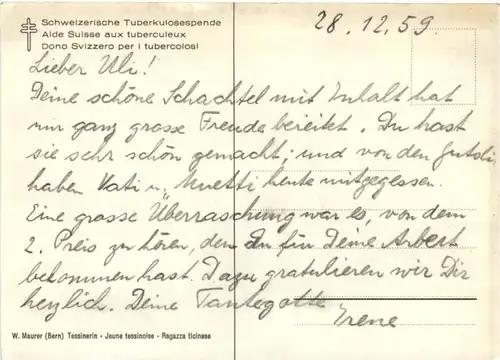 Schweizerische Tuberkulosespende
Aide Suisse aux tuberculeux
Dono Svizzero per i tubercolosi
28.12.59.
Lieber Uli!
Deine schöne Schachtel mit Inhalt hat
mir ganz grosse Freude bereitet. Du hast
sie sehr schön gemacht; und von den Gutsli
haben Vati u. Muetti heute mitgegessen.
Eine grosse Überraschung war es, von dem
2. Preis zu hören, den Du für Deine Arbeit
bekommen hast. Dazu gratulieren wir Dir
herzlich. Deine Tantegotte
Irene
W. Maurer (Bern) Tessinerin - Jeune tessinoise - Ragazza ticinese